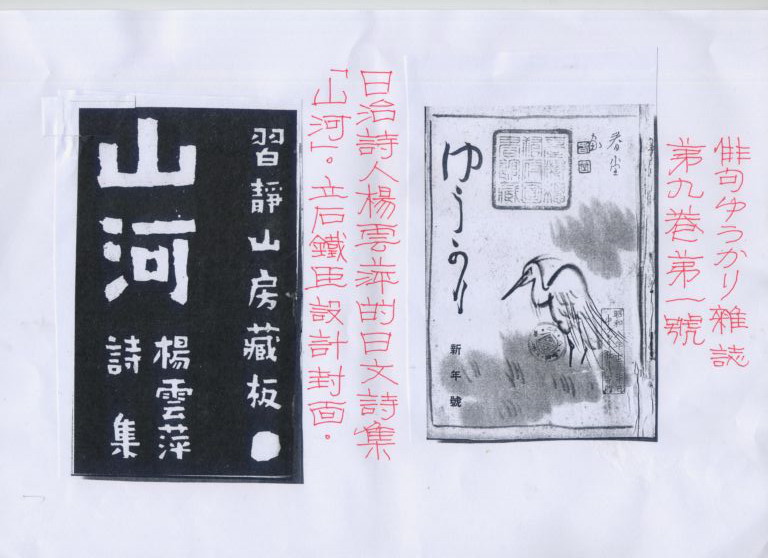 俳句ゆうかり雜誌
第九卷第一號
春尘
ゆうかり
新年號
日治詩人楊雲萍的日文詩集
「山河」。立石鐵臣設計封面。
習靜山房藏板
山河
楊雲萍
詩集